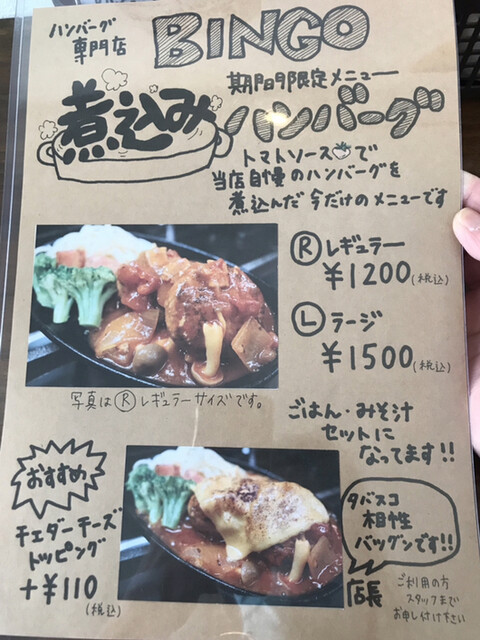 ハンバーグ
専門店
BINGO
期間限定メニュー
煮込み
ハンバーグ
トマトソースで
当店自慢のハンバーグを
煮込んだ 今だけのメニューです
Ⓡ レギュラー
¥1200(税込)
Ⓛ ラージ
¥1500(税込)
写真は Ⓡ レギュラーサイズです。
ごはん・みそ汁
セットに
なってます!!
おすすめ
チェダーチーズ
トッピング
+¥110
(税込)
タバスコ
相性
バッグンです!!
店長
ご利用の方
スタッフまで
お申し付け下さい